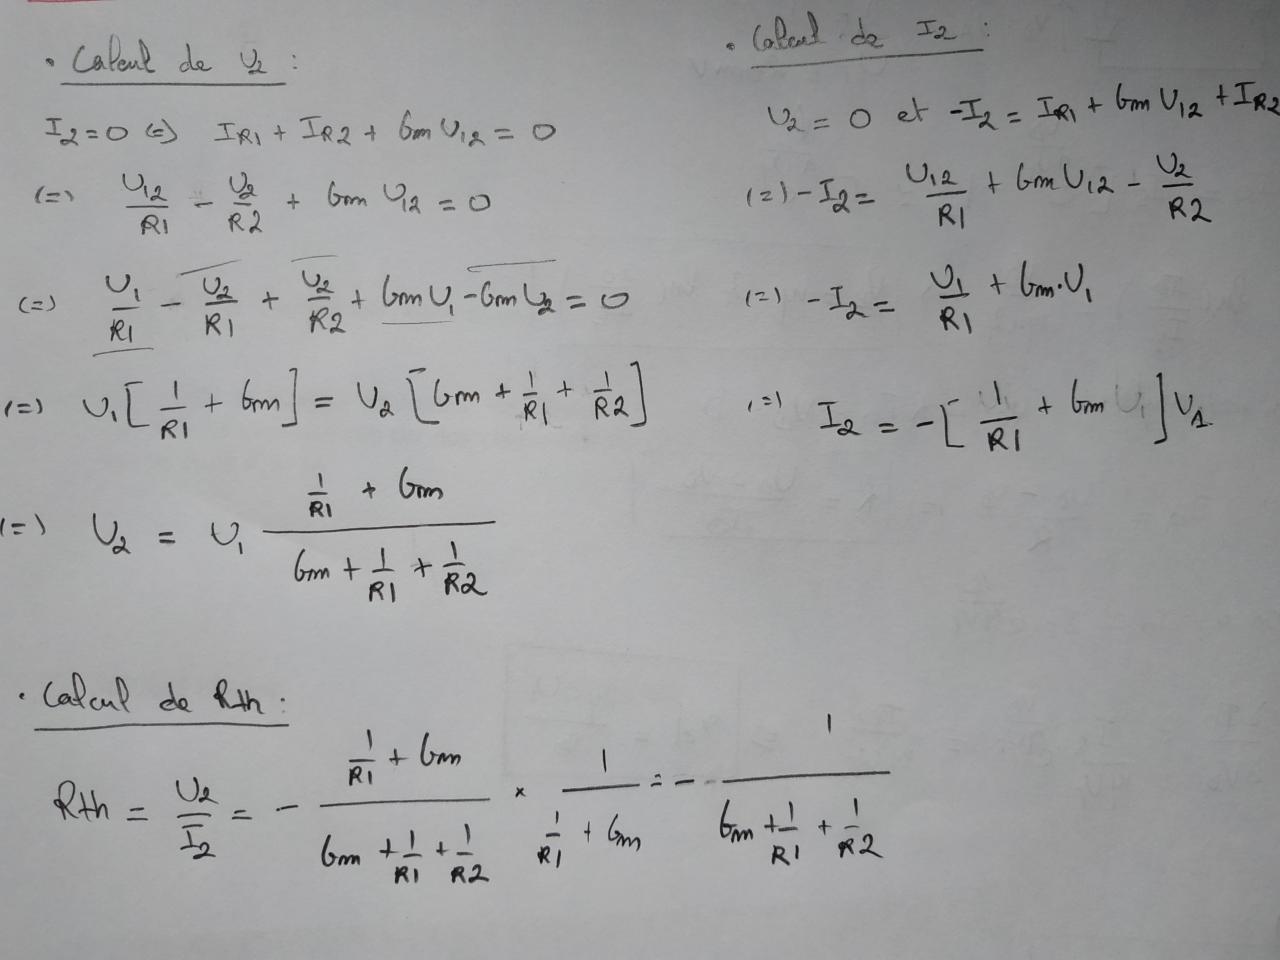 • Calcul de U2 :
I2 = 0 (=) IR1 + IR2 + Gm U12 = 0
(=) U12/R1 - U2/R2 + Gm U12 = 0
(=) U1/R1 - U2/R1 + U2/R2 + Gm U1 - Gm U2 = 0
(=) U1 [1/R1 + Gm] = U2 [Gm + 1/R1 + 1/R2]
(=) U2 = U1 (1/R1 + Gm)/(Gm + 1/R1 + 1/R2)
• Calcul de I2 :
U2 = 0 et -I2 = IR1 + Gm U12 + IR2
(=) -I2 = U12/R1 + Gm U12 - U2/R2
(=) -I2 = U1/R1 + Gm.U1
(=) I2 = -[1/R1 + Gm] U1
• Calcul de Rth :
Rth = U2/I2 = - (1/R1 + Gm)/(Gm + 1/R1 + 1/R2) × 1/(1/R1 + Gm) = - 1/(Gm + 1/R1 + 1/R2)